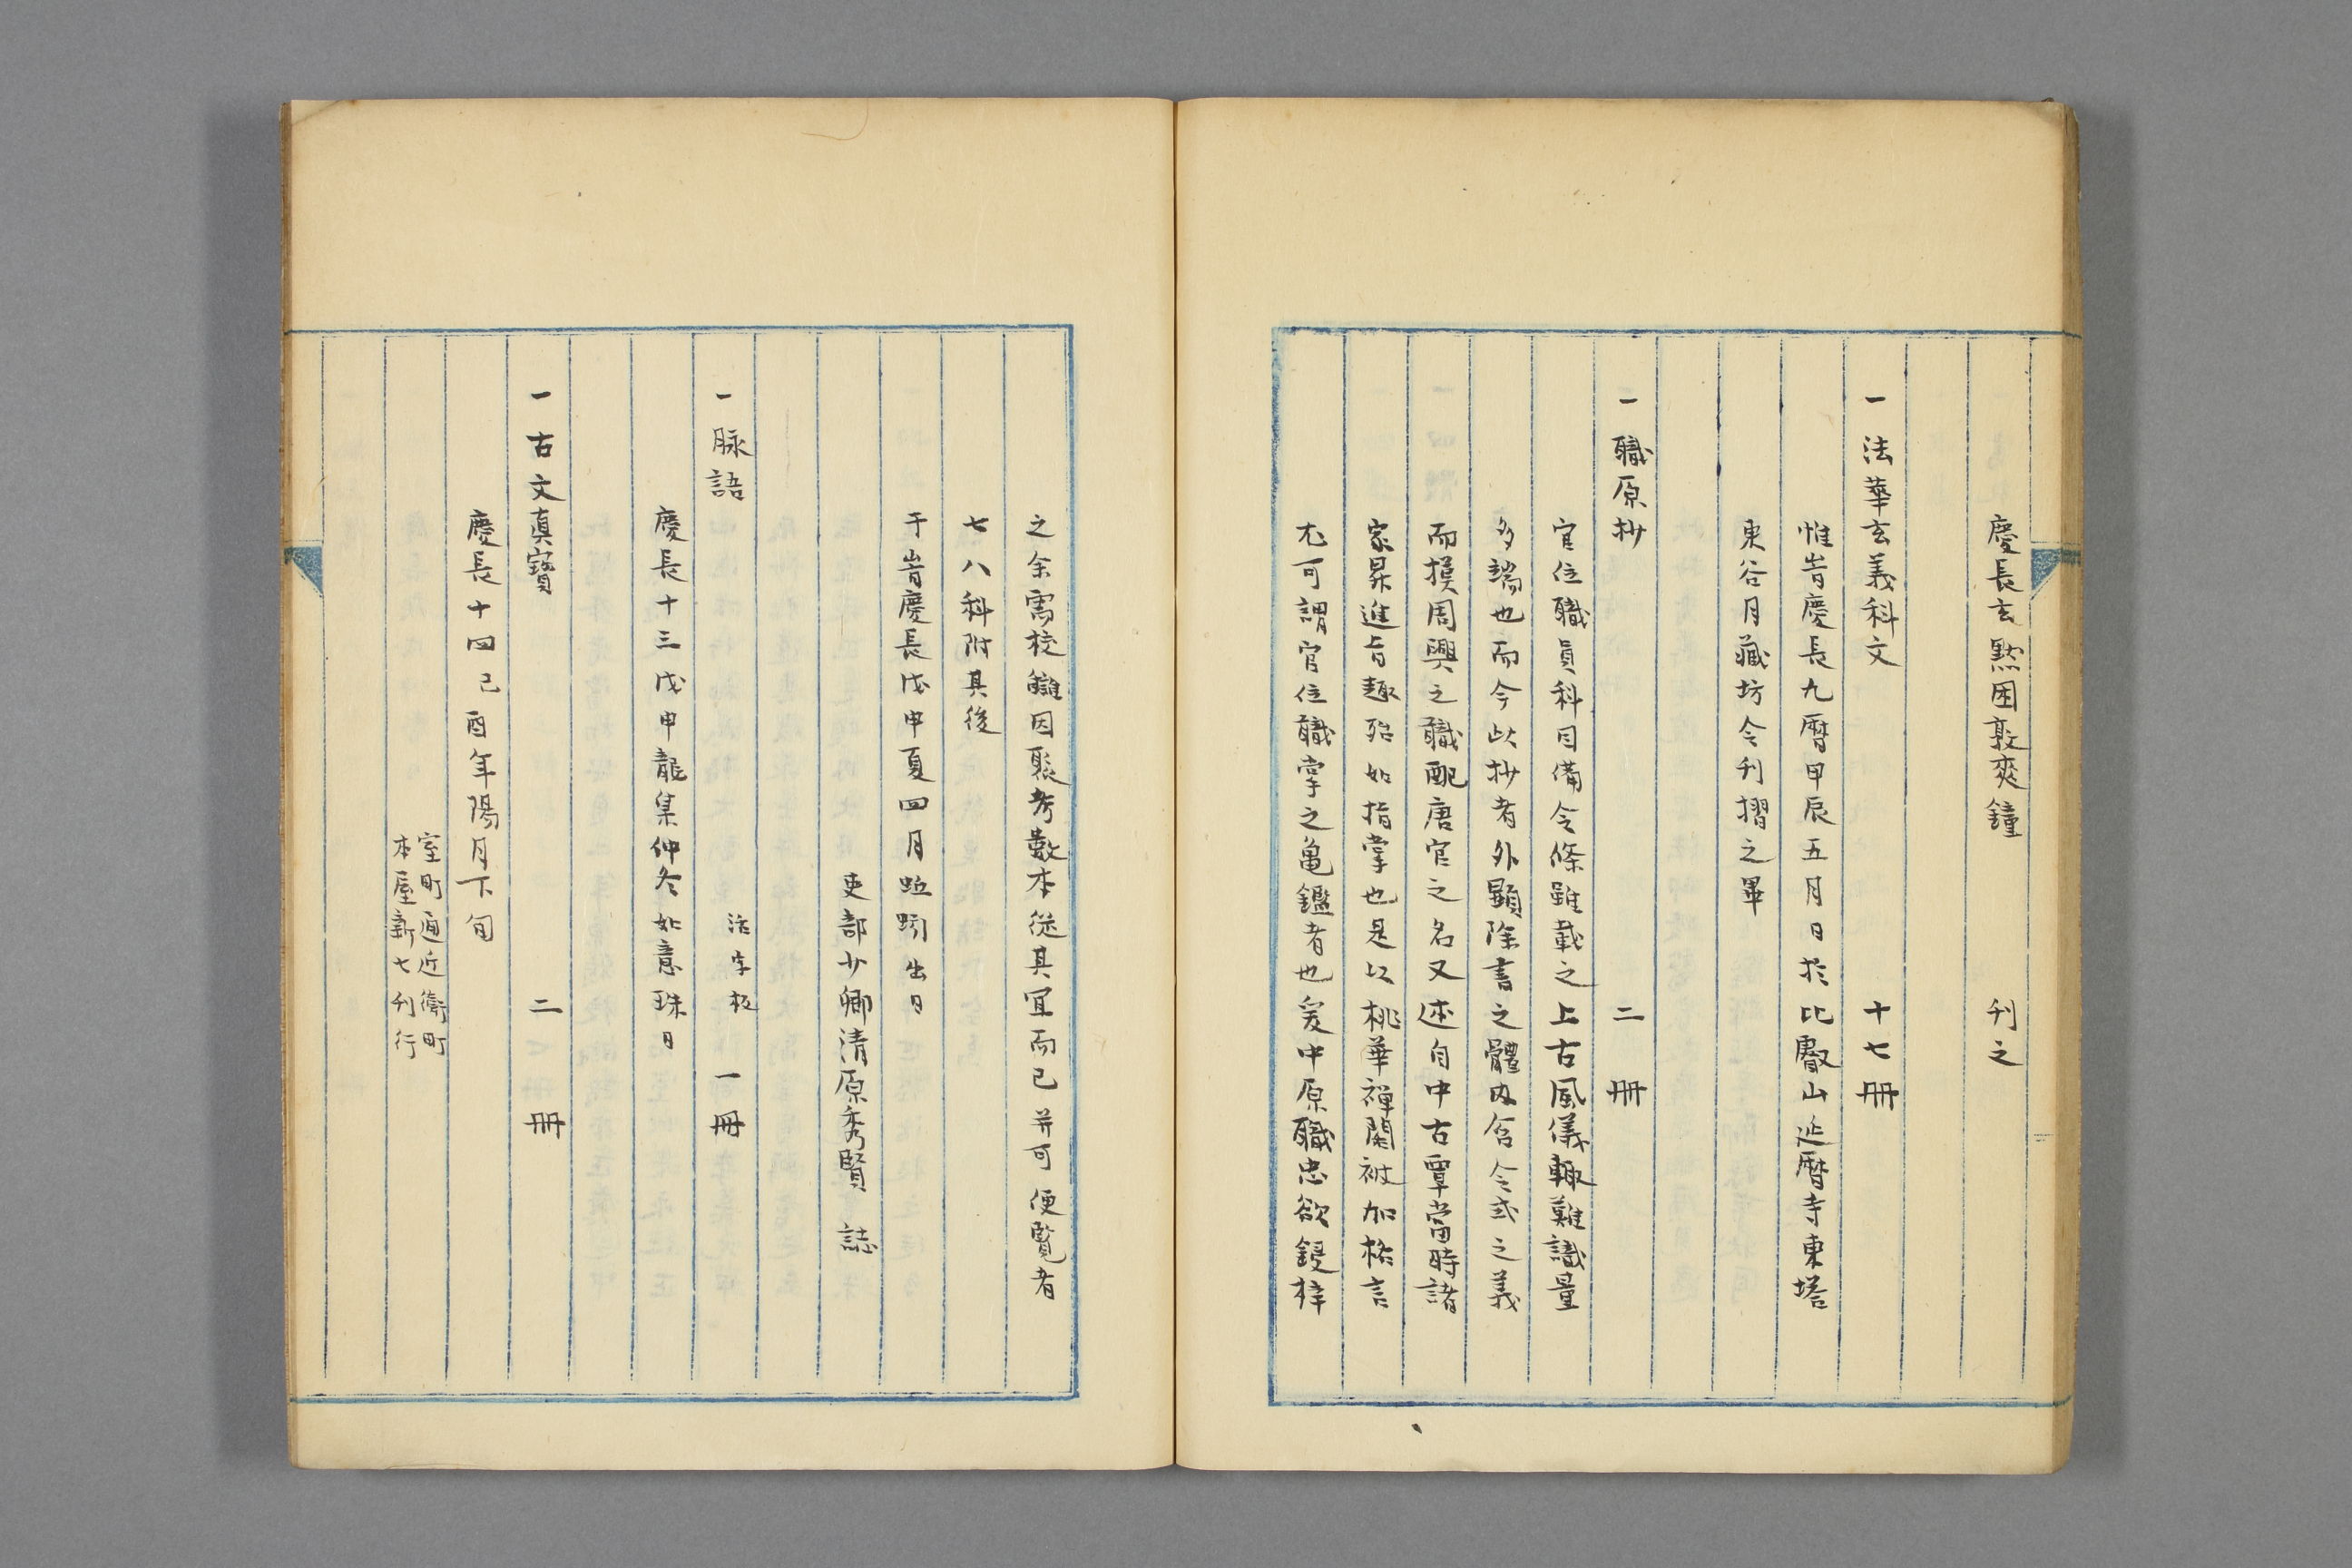 慶長玄黓困敦夾鐘　刊之
一法華玄義科文　十七冊
惟旹慶長九暦甲辰五月日於比叡山延暦寺東塔
東谷月藏坊令刊摺之畢
一職原抄　二冊
官位職員科目備令條雖載之上古風儀輙難識量
多端也而今此抄者外顕除書之體内含令式之義
而摸周興之職配唐官之名又述自中古覃當時諸
家昇進旨趣殆如指掌也是以桃華禅閤被加格言
尤可謂官位職掌之亀鑑者也爰中原職忠欲鋟梓
之余需校讎因聚考數本従其宜而已并可便覧者
七八科附其後
于旹慶長戊申夏四月蚯蚓出日
吏部少卿清原秀賢　誌
一脉語　活字板　一冊
慶長十三戊申龍集仲冬如意珠日
一古文真寶　二冊
慶長十四己酉年陽月下旬
室町通近衛町
本屋新七刊行